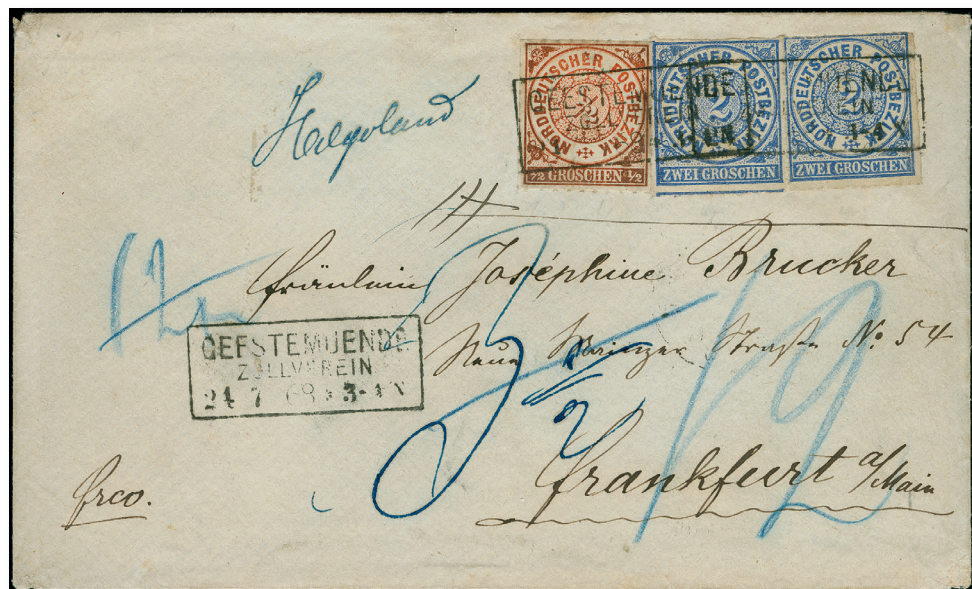 Helgoland
NORDDEUTSCHER POSTBEZIRK
1/2 GROSCHEN 1/2
NORDDEUTSCHER POSTBEZIRK
2
ZWEI GROSCHEN
NORDDEUTSCHER POSTBEZIRK
2
ZWEI GROSCHEN
Fräulein Joséphine Brucker
Neue Mainzer Straße No. 54
GEESTEMUENDE
ZOLLVEREIN
24 7 68 3-4 N
Frankfurt a/Main
frco.